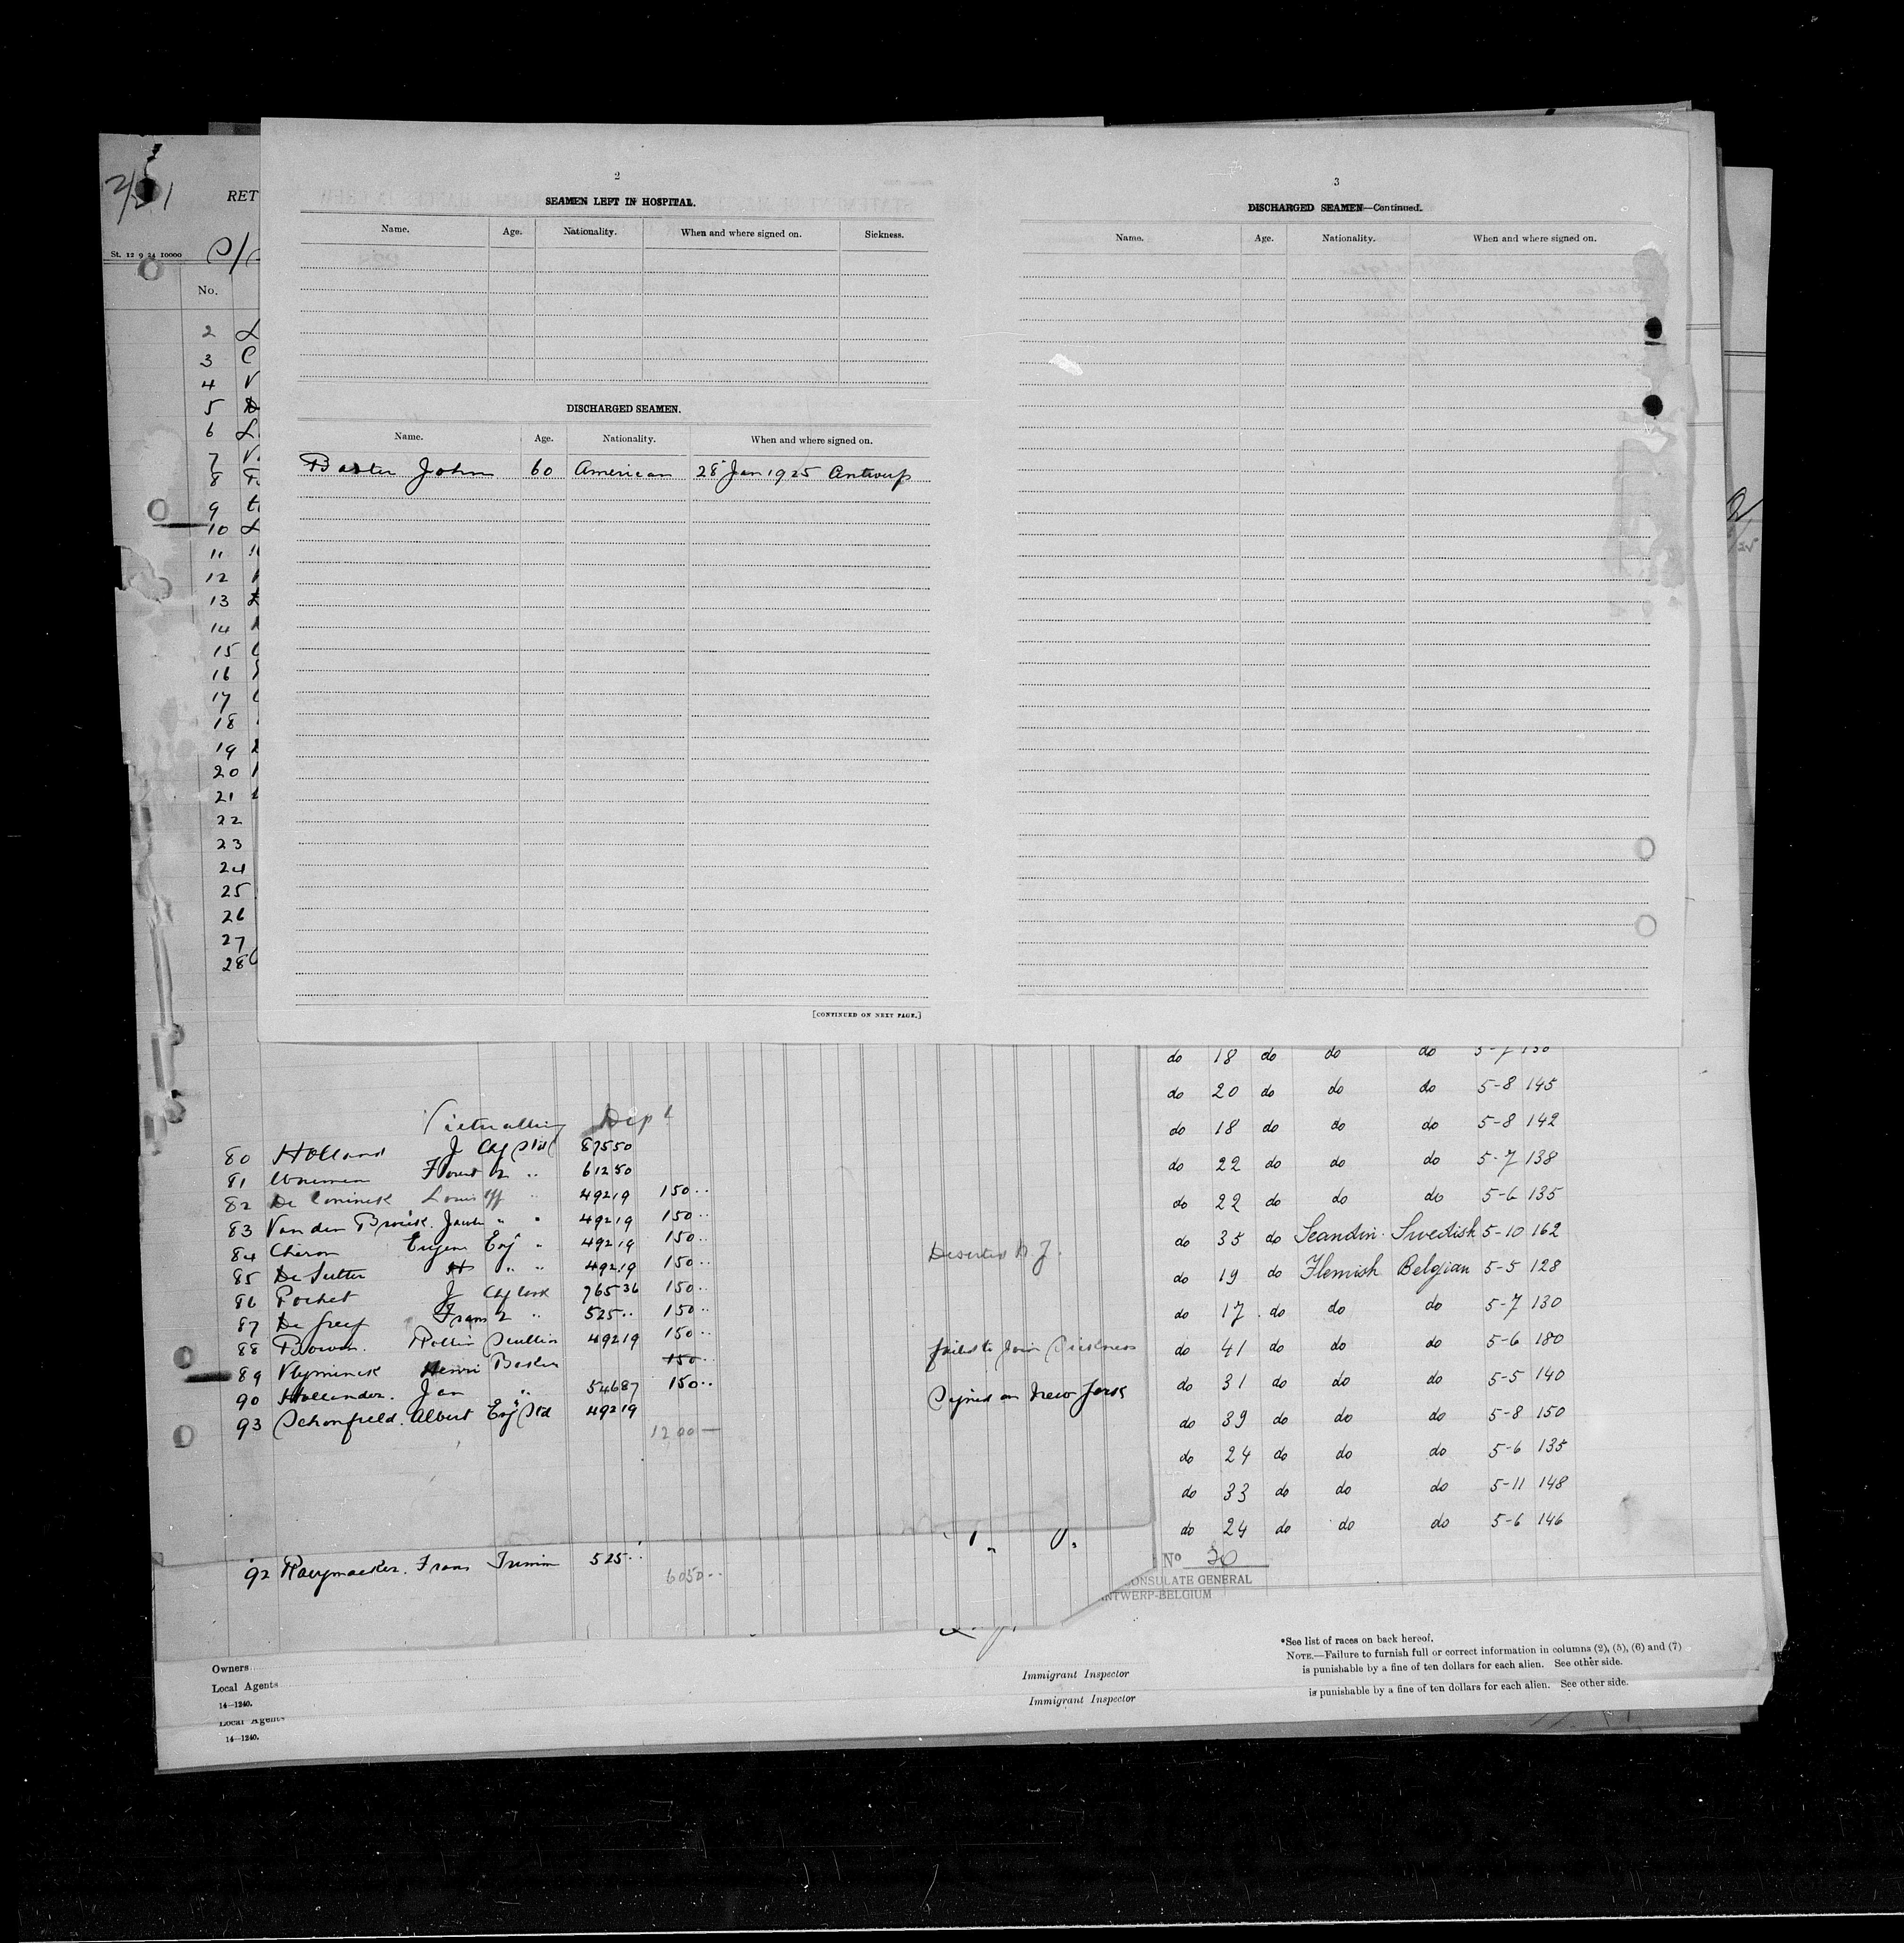 2
SEAMEN LEFT IN HOSPITAL.
Name. Age. Nationality. When and where signed on. Sickness.
DISCHARGED SEAMEN.
Name. Age. Nationality. When and where signed on.
Baxter John 60 American 28 Jan 1925 Antwerp
[CONTINUED ON NEXT PAGE.]
3
DISCHARGED SEAMEN—Continued.
Name. Age. Nationality. When and where signed on.
RET
St. 12 9 24 10000
No.
2
3
4
5
6
7
8
9
10
11
12
13
14
15
16
17
18
19
20
21
22
23
24
25
26
27
28
Victualling Dept
80 Holland J 87550
81 61250
82 De Coninck Louis 49219 150
83 Van den Broeck Jacob 49219 150
84 Cheron Eugene 49219 150 Deserted N.Y.
85 De Sutter 49219 150
86 Pochet J 76536 150
87 De Greef Frans 2 525 150
88 Rollin Scullion 49219 150
89 Vlyminck Henri Baker 150 failed to join Sickness
90 Hollander. Jan 54687 150
93 Schonfield. Albert 49219 Signed on New York
1200—
92 Raeymaeker. Frans Trimm 525
6050
do 18 do do do 5-7 130
do 20 do do do 5-8 145
do 18 do do do 5-8 142
do 22 do do do 5-7 138
do 22 do do do 5-6 135
do 35 do Scandin. Swedish 5-10 162
do 19 do Flemish Belgian 5-5 128
do 17 do do do 5-7 130
do 41 do do do 5-6 180
do 31 do do do 5-5 140
do 39 do do do 5-8 150
do 24 do do do 5-6 135
do 33 do do do 5-11 148
do 24 do do do 5-6 146
No 20
CONSULATE GENERAL
ANTWERP-BELGIUM
*See list of races on back hereof.
NOTE.—Failure to furnish full or correct information in columns (2), (5), (6) and (7)
is punishable by a fine of ten dollars for each alien. See other side.
is punishable by a fine of ten dollars for each alien. See other side.
Owners
Local Agents
14—1240.
Local Agents
14—1240.
Immigrant Inspector
Immigrant Inspector